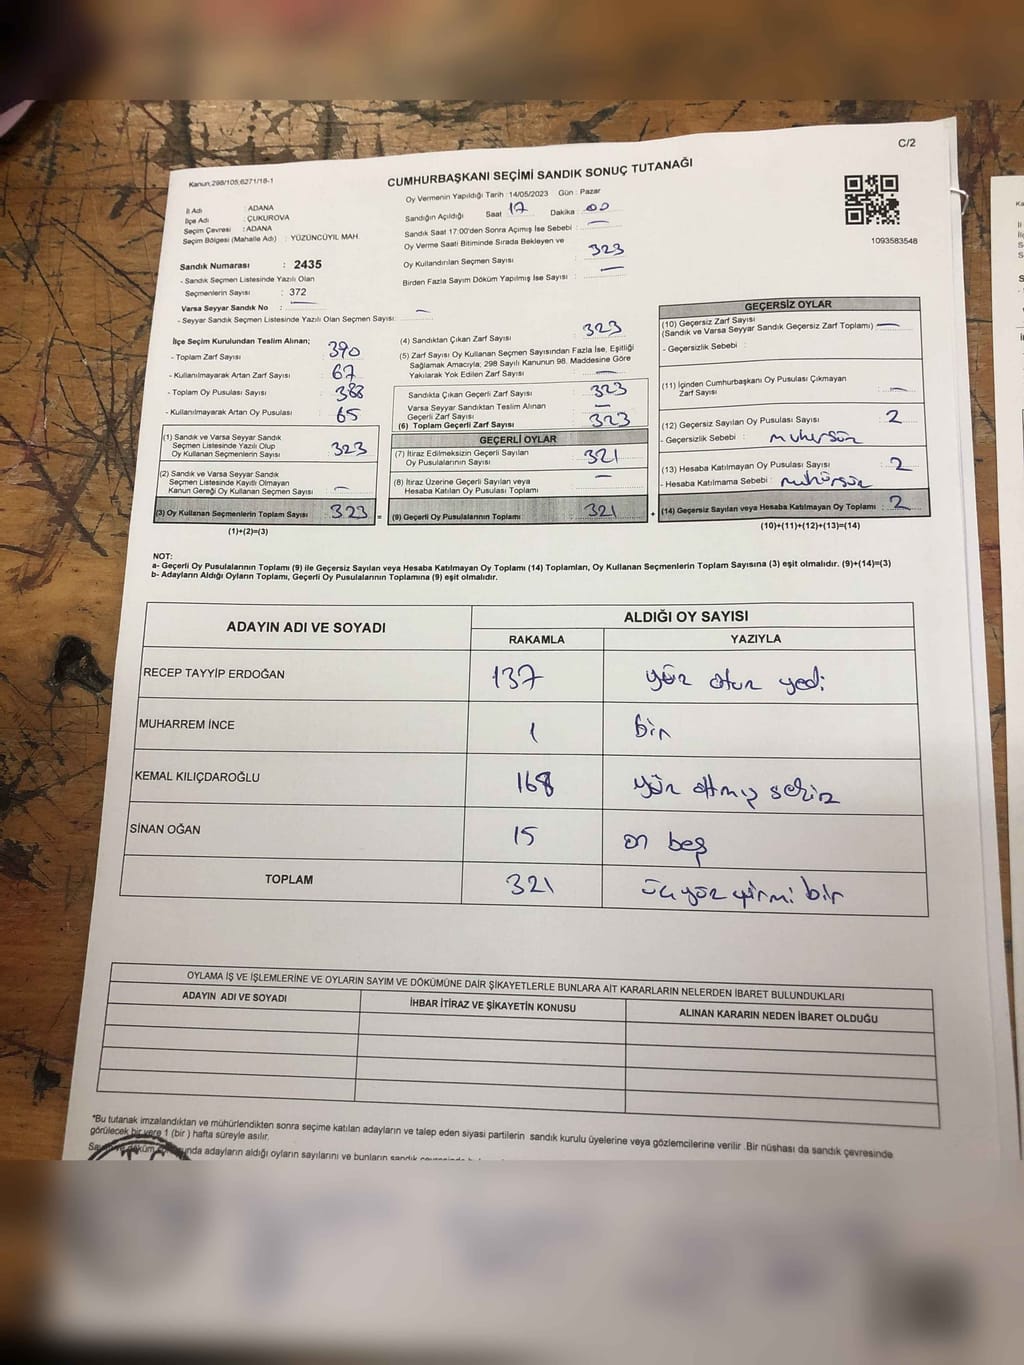 C/2
Kanun:298/105;6271/18-1
CUMHURBAŞKANI SEÇİMİ SANDIK SONUÇ TUTANAĞI
1093583548
İl Adı : ADANA
İlçe Adı : ÇUKUROVA
Seçim Çevresi : ADANA
Seçim Bölgesi (Mahalle Adı) : YÜZÜNCÜYIL MAH.
Sandık Numarası : 2435
- Sandık Seçmen Listesinde Yazılı Olan
Seçmenlerin Sayısı : 372
Varsa Seyyar Sandık No : —
- Seyyar Sandık Seçmen Listesinde Yazılı Olan Seçmen Sayısı: —
Oy Vermenin Yapıldığı Tarih : 14/05/2023 Gün : Pazar
Sandığın Açıldığı Saat 17 Dakika : 00
Sandık Saat 17:00'den Sonra Açımış İse Sebebi : —
Oy Verme Saati Bitiminde Sırada Bekleyen ve
Oy Kullandırılan Seçmen Sayısı : 323
Birden Fazla Sayım Döküm Yapılmış İse Sayısı : —
İlçe Seçim Kurulundan Teslim Alınan;
- Toplam Zarf Sayısı : 390
- Kullanılmayarak Artan Zarf Sayısı : 67
- Toplam Oy Pusulası Sayısı : 388
- Kullanılmayarak Artan Oy Pusulası : 65
(1) Sandık ve Varsa Seyyar Sandık
Seçmen Listesinde Yazılı Olup
Oy Kullanan Seçmenlerin Sayısı : 323
(2) Sandık ve Varsa Seyyar Sandık
Seçmen Listesinde Kayıtlı Olmayan
Kanun Gereği Oy Kullanan Seçmen Sayısı : —
(3) Oy Kullanan Seçmenlerin Toplam Sayısı : 323 =
(1)+(2)=(3)
(4) Sandıktan Çıkan Zarf Sayısı : 323
(5) Zarf Sayısı Oy Kullanan Seçmen Sayısından Fazla İse, Eşitliği
Sağlamak Amacıyla; 298 Sayılı Kanunun 98. Maddesine Göre
Yakılarak Yok Edilen Zarf Sayısı : —
Sandıkta Çıkan Geçerli Zarf Sayısı : 323
Varsa Seyyar Sandıktan Teslim Alınan
Geçerli Zarf Sayısı : —
(6) Toplam Geçerli Zarf Sayısı : 323
GEÇERLİ OYLAR
(7) İtiraz Edilmeksizin Geçerli Sayılan
Oy Pusulalarının Sayısı : 321
(8) İtiraz Üzerine Geçerli Sayılan veya
Hesaba Katılan Oy Pusulası Toplamı : —
(9) Geçerli Oy Pusulalarının Toplamı : 321 +
GEÇERSİZ OYLAR
(10) Geçersiz Zarf Sayısı
(Sandık ve Varsa Seyyar Sandık Geçersiz Zarf Toplamı) : —
- Geçersizlik Sebebi :
(11) İçinden Cumhurbaşkanı Oy Pusulası Çıkmayan
Zarf Sayısı : —
(12) Geçersiz Sayılan Oy Pusulası Sayısı : 2
- Geçersizlik Sebebi : mühürsüz
(13) Hesaba Katılmayan Oy Pusulası Sayısı : 2
- Hesaba Katılmama Sebebi : mühürsüz
(14) Geçersiz Sayılan veya Hesaba Katılmayan Oy Toplamı : 2
(10)+(11)+(12)+(13)=(14)
NOT:
a- Geçerli Oy Pusulalarının Toplamı (9) ile Geçersiz Sayılan veya Hesaba Katılmayan Oy Toplamı (14) Toplamları, Oy Kullanan Seçmenlerin Toplam Sayısına (3) eşit olmalıdır. (9)+(14)=(3)
b- Adayların Aldığı Oyların Toplamı, Geçerli Oy Pusulalarının Toplamına (9) eşit olmalıdır.
ADAYIN ADI VE SOYADI ALDIĞI OY SAYISI
RAKAMLA YAZIYLA
RECEP TAYYİP ERDOĞAN 137 yüz otuz yedi
MUHARREM İNCE 1 bir
KEMAL KILIÇDAROĞLU 168 yüz altmış sekiz
SİNAN OĞAN 15 on beş
TOPLAM 321 üçyüz yirmi bir
OYLAMA İŞ VE İŞLEMLERİNE VE OYLARIN SAYIM VE DÖKÜMÜNE DAİR ŞİKAYETLERLE BUNLARA AİT KARARLARIN NELERDEN İBARET BULUNDUKLARI
ADAYIN ADI VE SOYADI İHBAR İTİRAZ VE ŞİKAYETİN KONUSU ALINAN KARARIN NEDEN İBARET OLDUĞU
*Bu tutanak imzalandıktan ve mühürlendikten sonra seçime katılan adayların ve talep eden siyasi partilerin sandık kurulu üyelerine veya gözlemcilerine verilir .Bir nüshası da sandık çevresinde
görülecek bir yere 1 (bir ) hafta süreyle asılır.
adayların aldığı oyların sayılarını ve bunların sandık